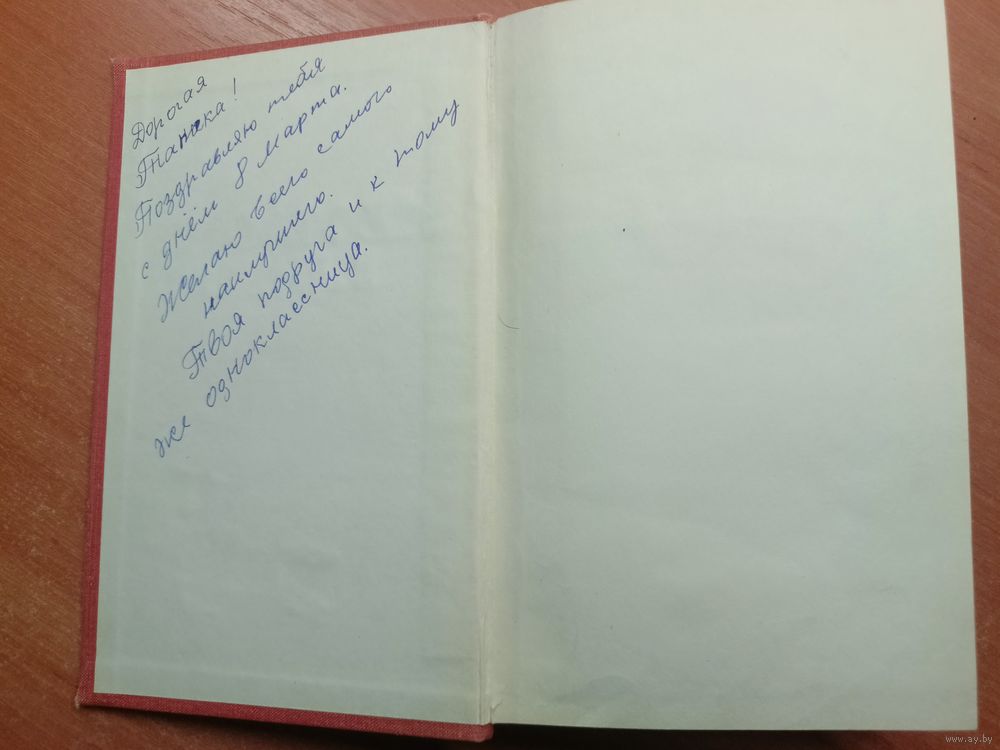 Дорогая
Танька!
Поздравляю тебя
с днём 8 Марта.
Желаю всего самого
наилучшего.
Твоя подруга и к тому
же одноклассница.
www.ay.by